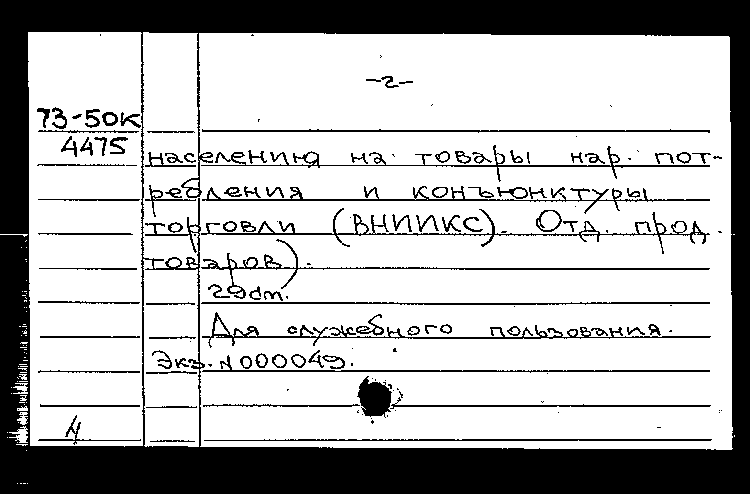 -2-
73-50К
4475
населению на товары нар. пот-
ребления и конъюнктуры
торговли (ВНИИКС). Отд. прод.
товаров).
29cm.
Для служебного пользования.
Экз. N000049.